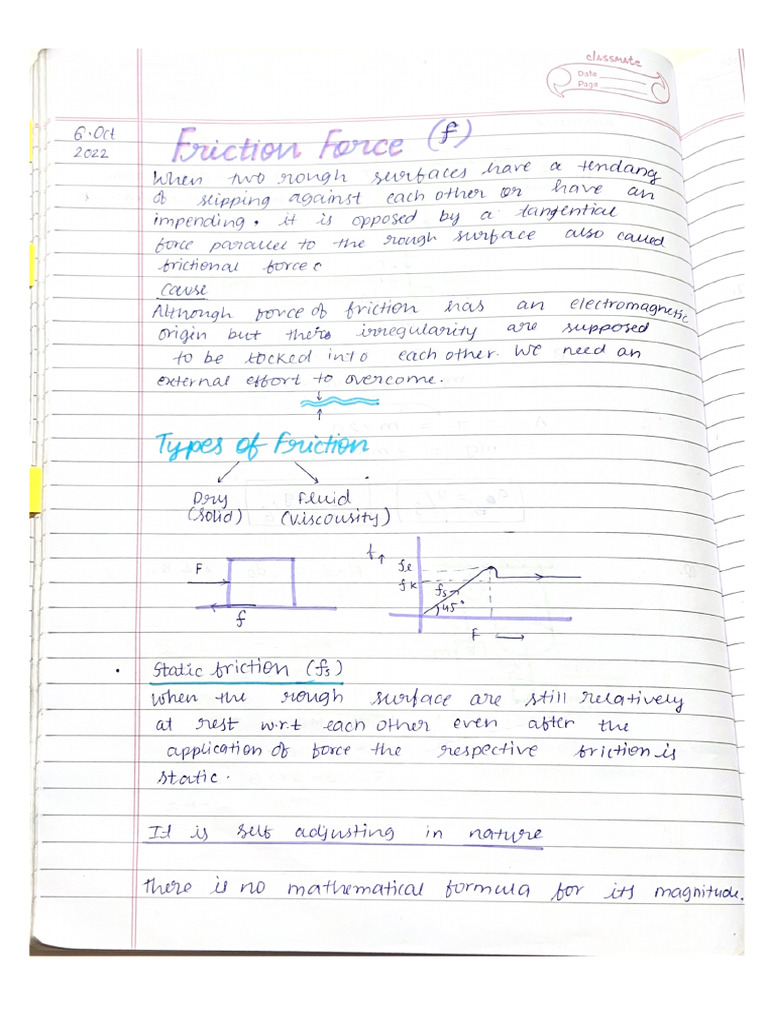 classmate
Date
Page
6. Oct
2022
Friction Force (f)
When two rough surfaces have a tendang
of slipping against each other or have an
impending. it is opposed by a tangential
force parallel to the rough surface also called
frictional force
Cause
Although force of friction has an electromagnetic
origin but there irregularity are supposed
to be locked into each other. We need an
external effort to overcome.
Types of Friction
Dry Fluid
(Solid) (Viscousity)
F
f
f
fl
fk
fs
45°
F
Static friction (fs)
When the rough surface are still relatively
at rest w.r.t each other even after the
application of force the respective friction is
static.
It is self adjusting in nature
there is no mathematical formula for its magnitude.